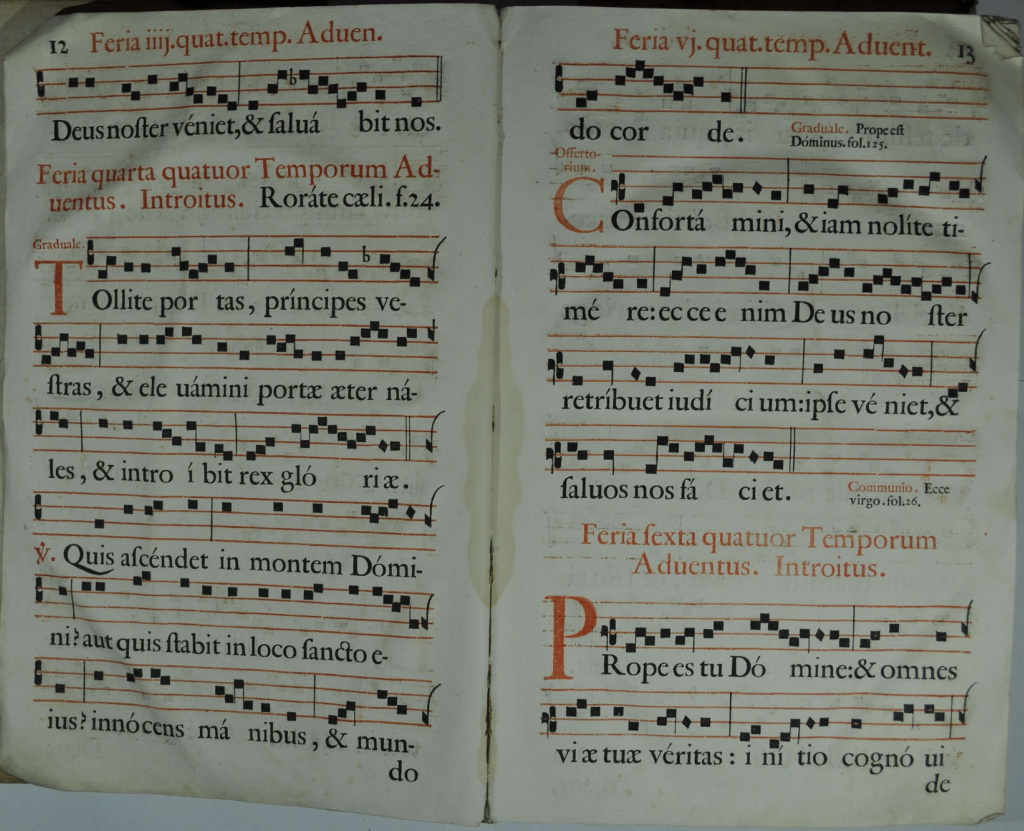 12 Feria iiij.quat.temp. Aduen.
Deus noſter véniet,& ſaluá bit nos.
Feria quarta quatuor Temporum Ad-
uentus. Introitus. Roráte cæli. f.24.
Graduale.
TOllite por tas, príncipes ve-
ſtras, & ele uámini portæ æter ná-
les, & intro í bit rex gló riæ.
℣. Quis aſcéndet in montem Dómi-
ni? aut quis ſtabit in loco ſancto e-
ius? innócens má nibus, & mun-
do
Feria vj. quat.temp. Aduent. 13
do cor de. Graduale. Prope eſt
Dóminus.fol.125.
Offerto-
rium.
COnfortá mini, & iam nolíte ti-
mé re: ec ce e nim De us no ſter
retríbuet iudí ci um: ipſe vé niet,&
ſaluos nos fá ci et. Communio. Ecce
virgo.fol.26.
Feria ſexta quatuor Temporum
Aduentus. Introitus.
PRope es tu Dó mine: & omnes
vi æ tuæ véritas: i ni tio cognó ui
de